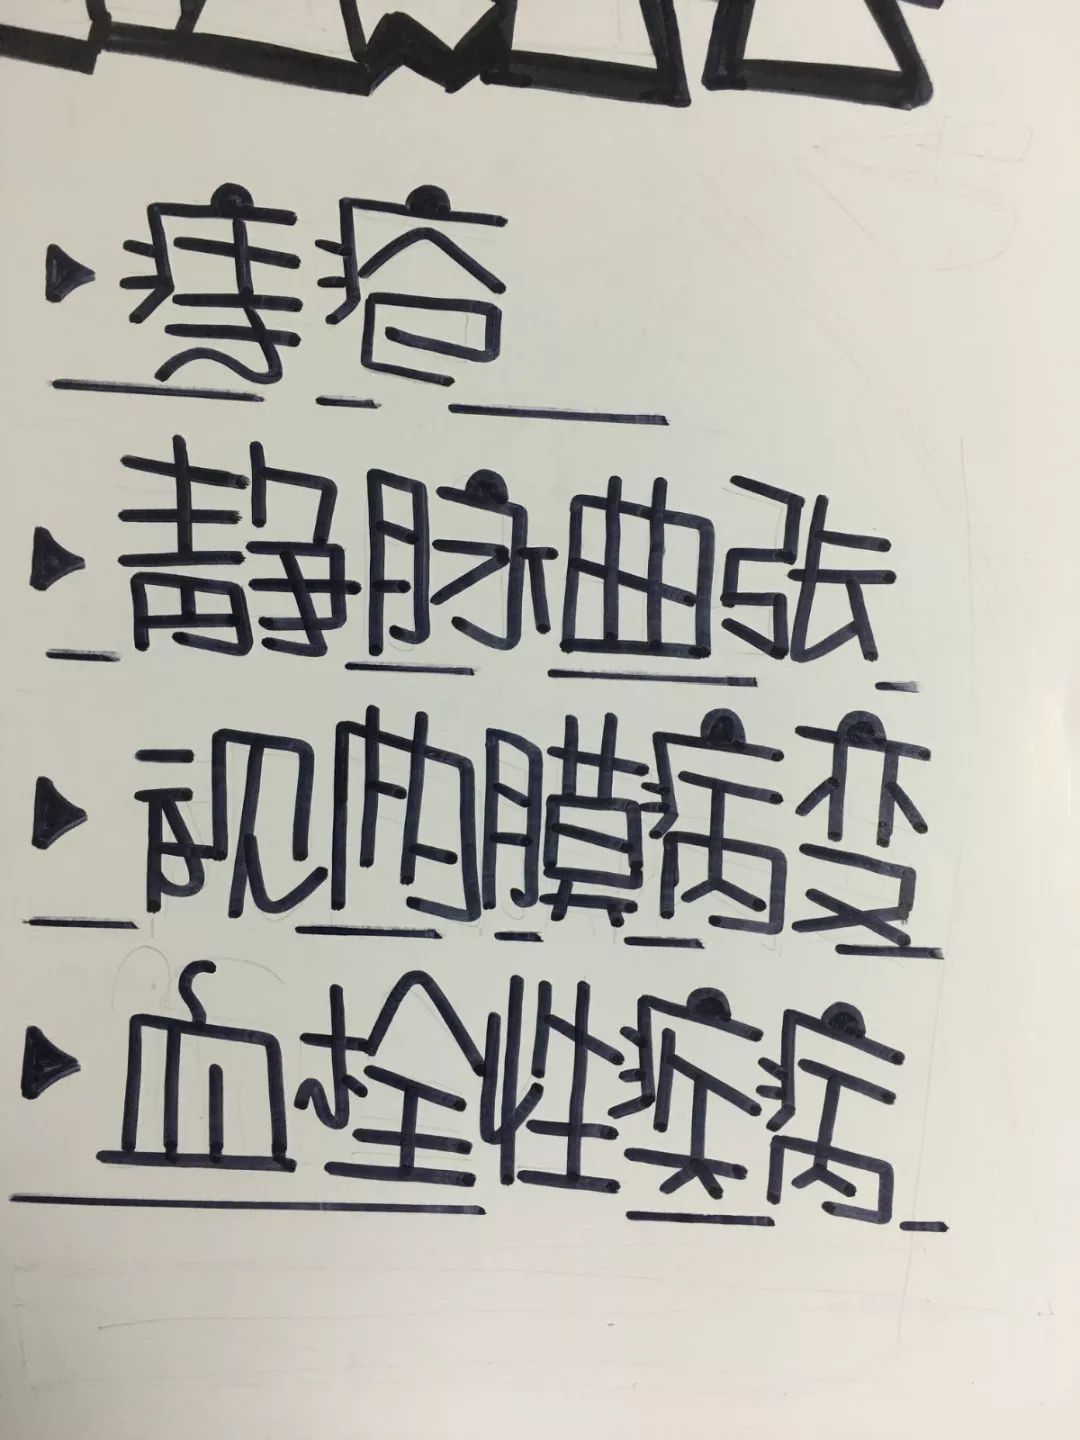 痔疮
静脉曲张
视网膜病变
血栓性疾病